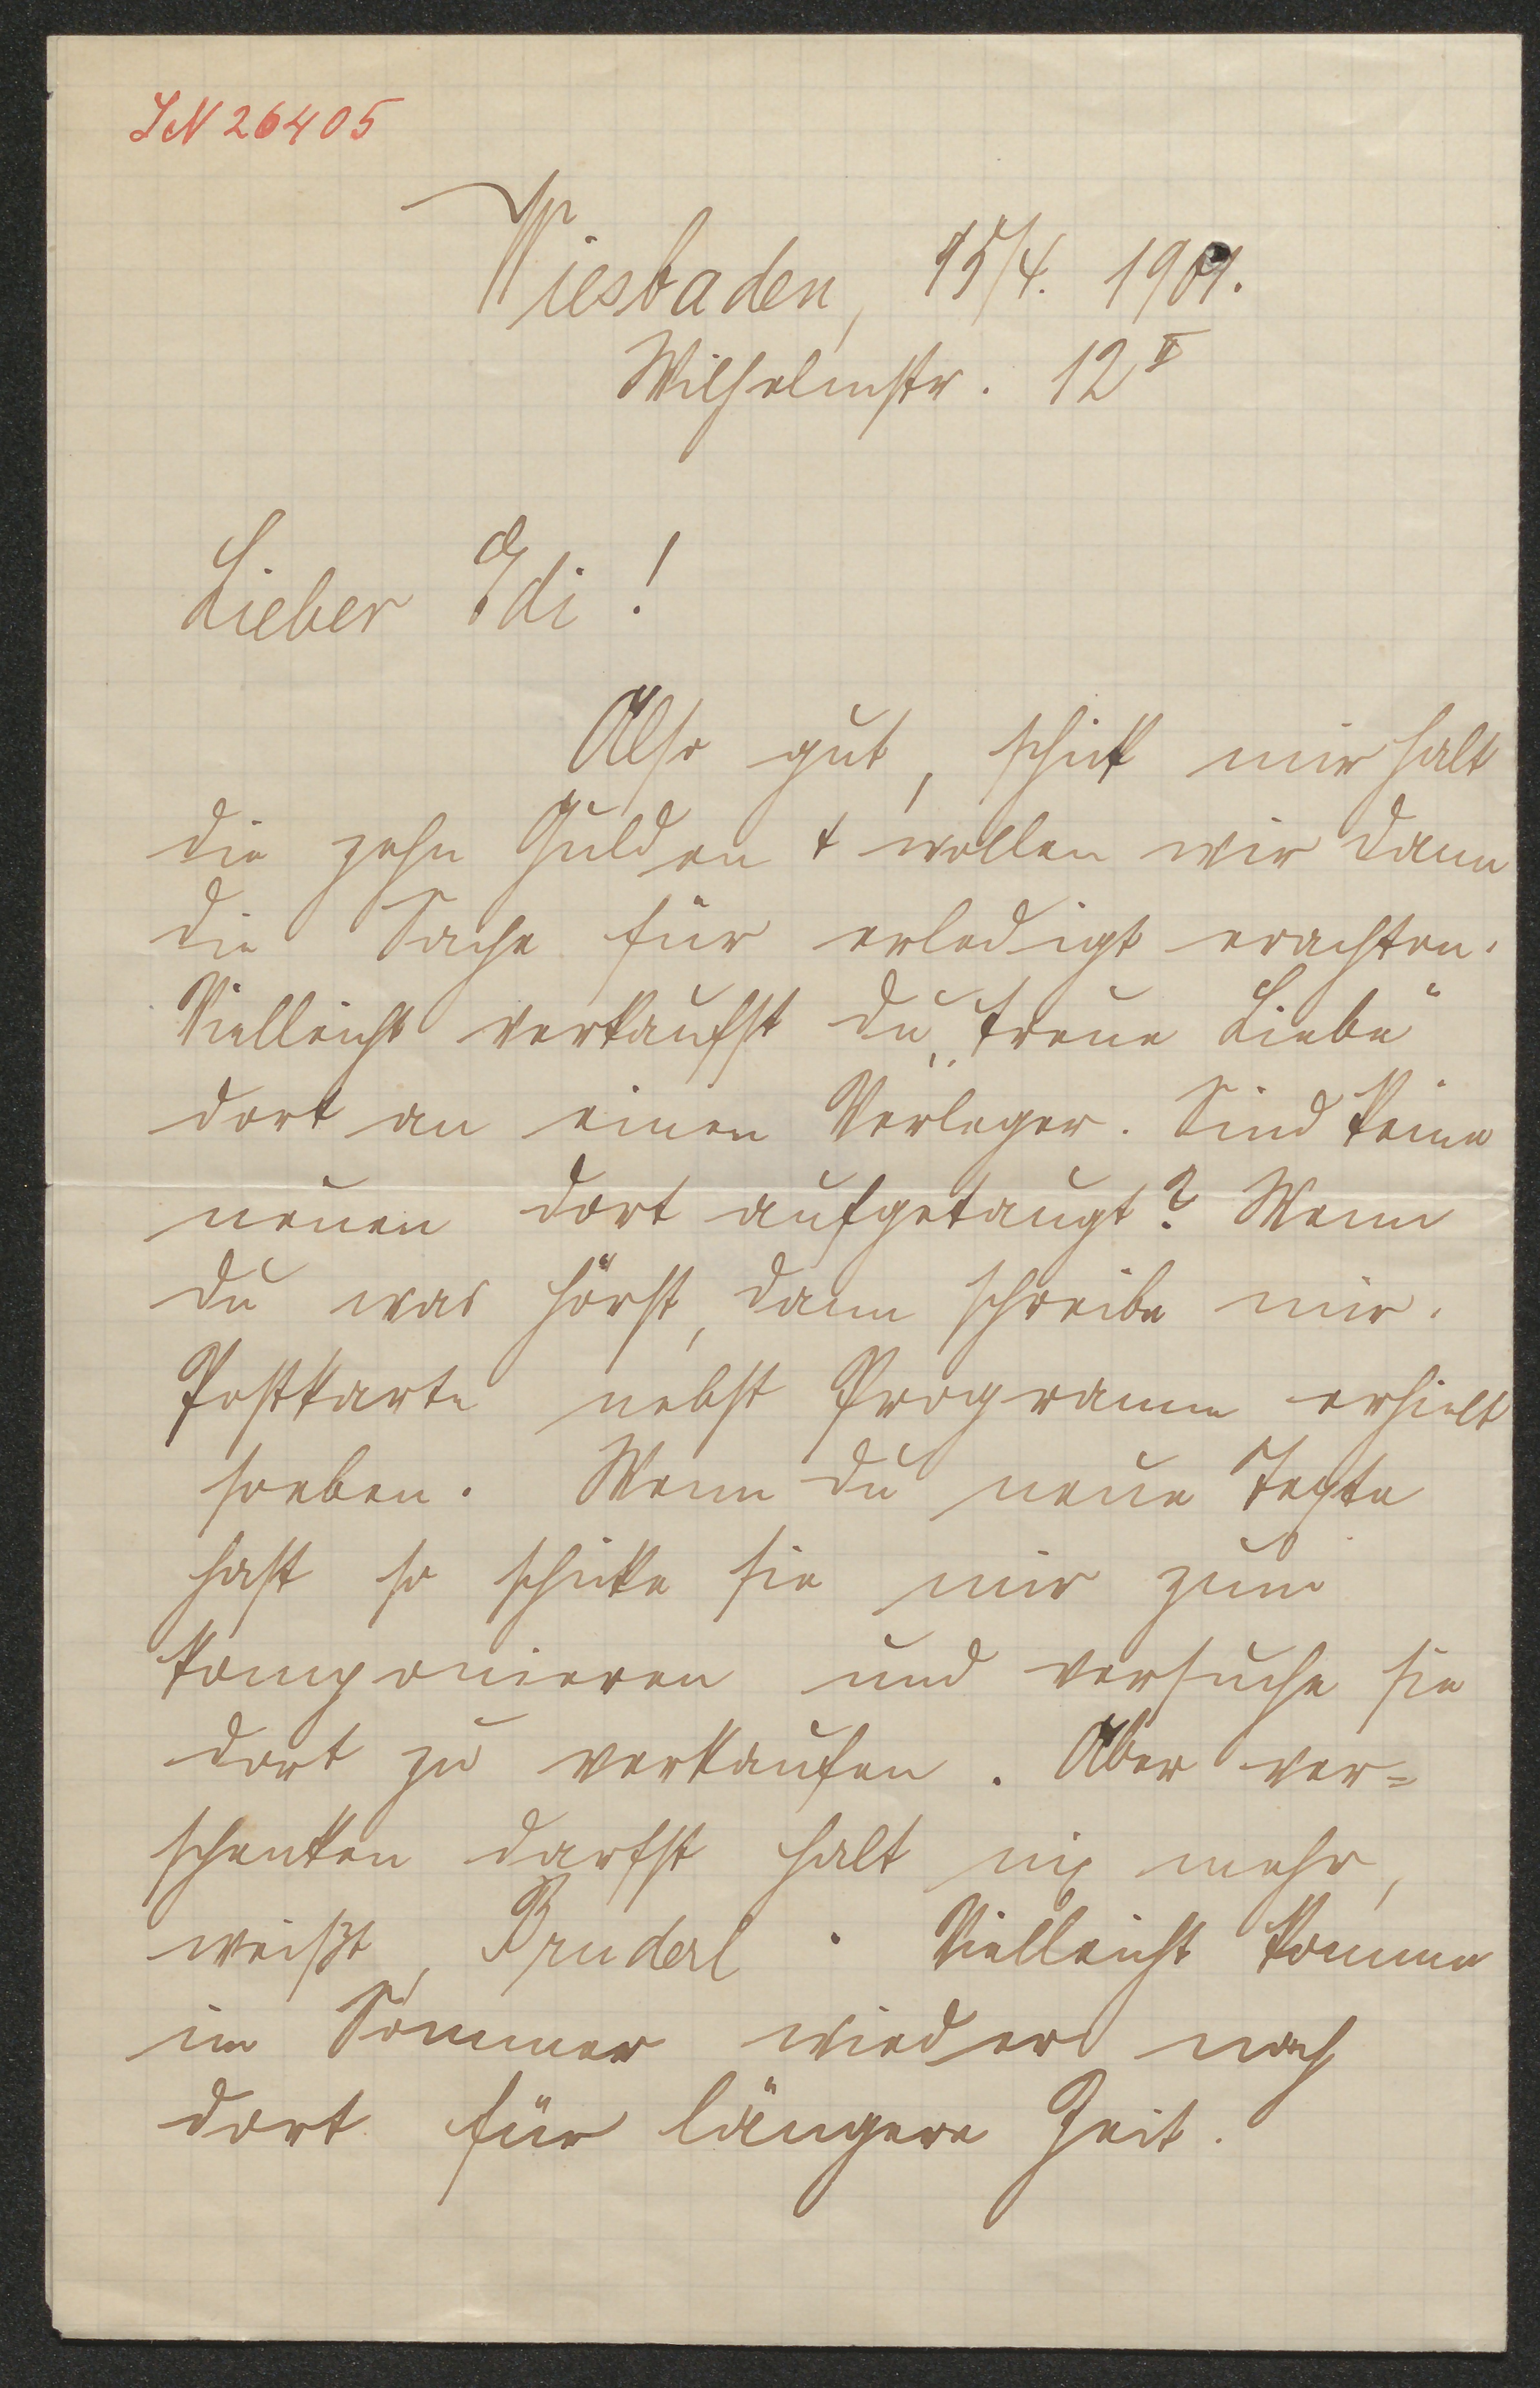 IN 26405
Wiesbaden, 15/4. 1901.
Wilhelmstr. 12 II
Lieber Edi!
Also gut, schick mir halt
die zehn Gulden & wollen wir dann
die Sache für erledigt erachten.
Vielleicht verkaufst du „treue Liebe“
dort an einen Verleger. Sind keine
neuen dort aufgetaugt? Wenn
du was hörst, dann schreibe mir.
Postkarte nebst Programm erhielt
soeben. Wenn du neue Texte
hast so schicke sie mir zum
komponieren und versuche sie
dort zu verkaufen. Aber ver-
schenken darfst halt nix mehr,
weißt, Bruderl. Vielleicht komme
im Sommer wieder nach
dort für längere Zeit.